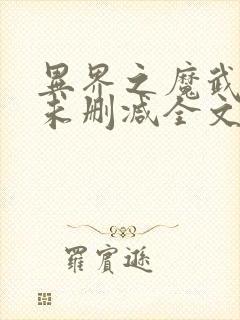 異界之魔武
未删减全文
羅賓遜